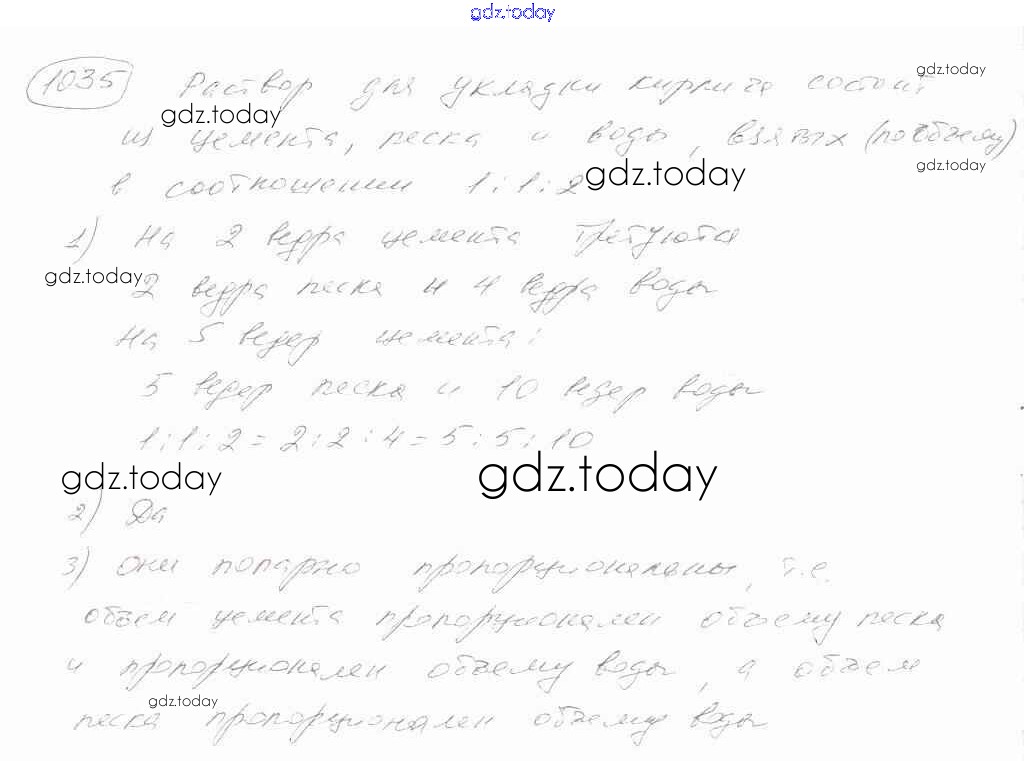 gdz.today
1035 Раствор для укладки кирпича состоит
gdz.today
gdz.today
из цемента, песка и воды, взятых (по объему)
gdz.today
в соотношении 1:1:2
gdz.today
1) На 2 ведра цемента требуются
gdz.today
2 ведра песка и 4 ведра воды
На 5 ведер цемента:
5 ведер песка и 10 ведер воды
1:1:2 = 2:2:4 = 5:5:10
gdz.today
gdz.today
2) Да
3) Они попарно пропорциональны, т.е.
объем цемента пропорционален объему песка
и пропорционален объему воды, а объем
gdz.today
песка пропорционален объему воды